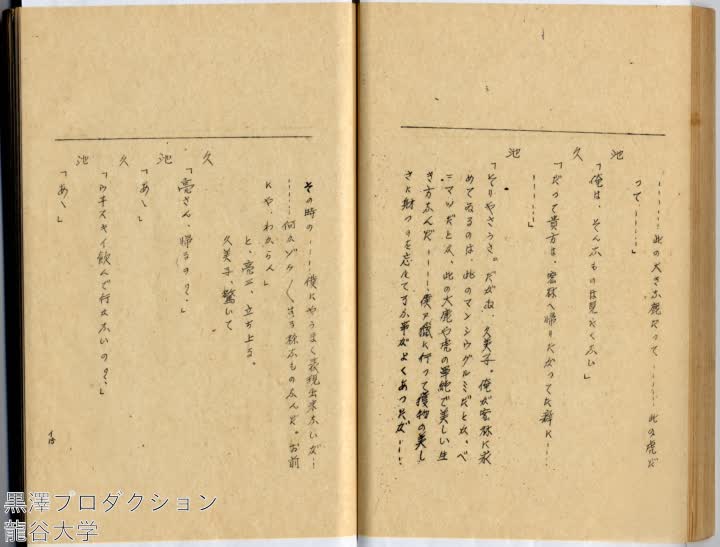 池
「………此の大きな鹿だって………此の虎だ
って……」
久
「俺は、そんなものは見たくない」
池
「だって貴方は、密林へ帰りたがってた癖に…
……」
「そりやさうさ。だがね、久美子。俺が密林に
めてゐるのは、此のマンシウグルミだとか、ベ
ニマツだとか、此の大鹿や虎の単純で美しい生
き方なんだ………僕が猟に行って獲物の美し
さに射つのを忘れてする事がよくあったが……
その時の……僕にやうまく表現出来ないが…
……何かゾク〱する様なものなんだ。お前
にや、わからん」
と、亮二、立ち上る。
久美子、驚いて
久
「亮さん、帰るの?」
池
「あゝ」
久
「ウヰスキイ飲んで行かないの?」
池
「あゝ」
黒澤プロダクション
龍谷大学